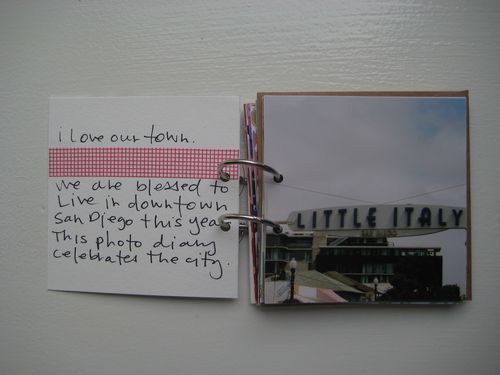 i love our town.
we are blessed to
Live in downtown
San Diego this year
This photo diary
celebrates the city.
LITTLE ITALY